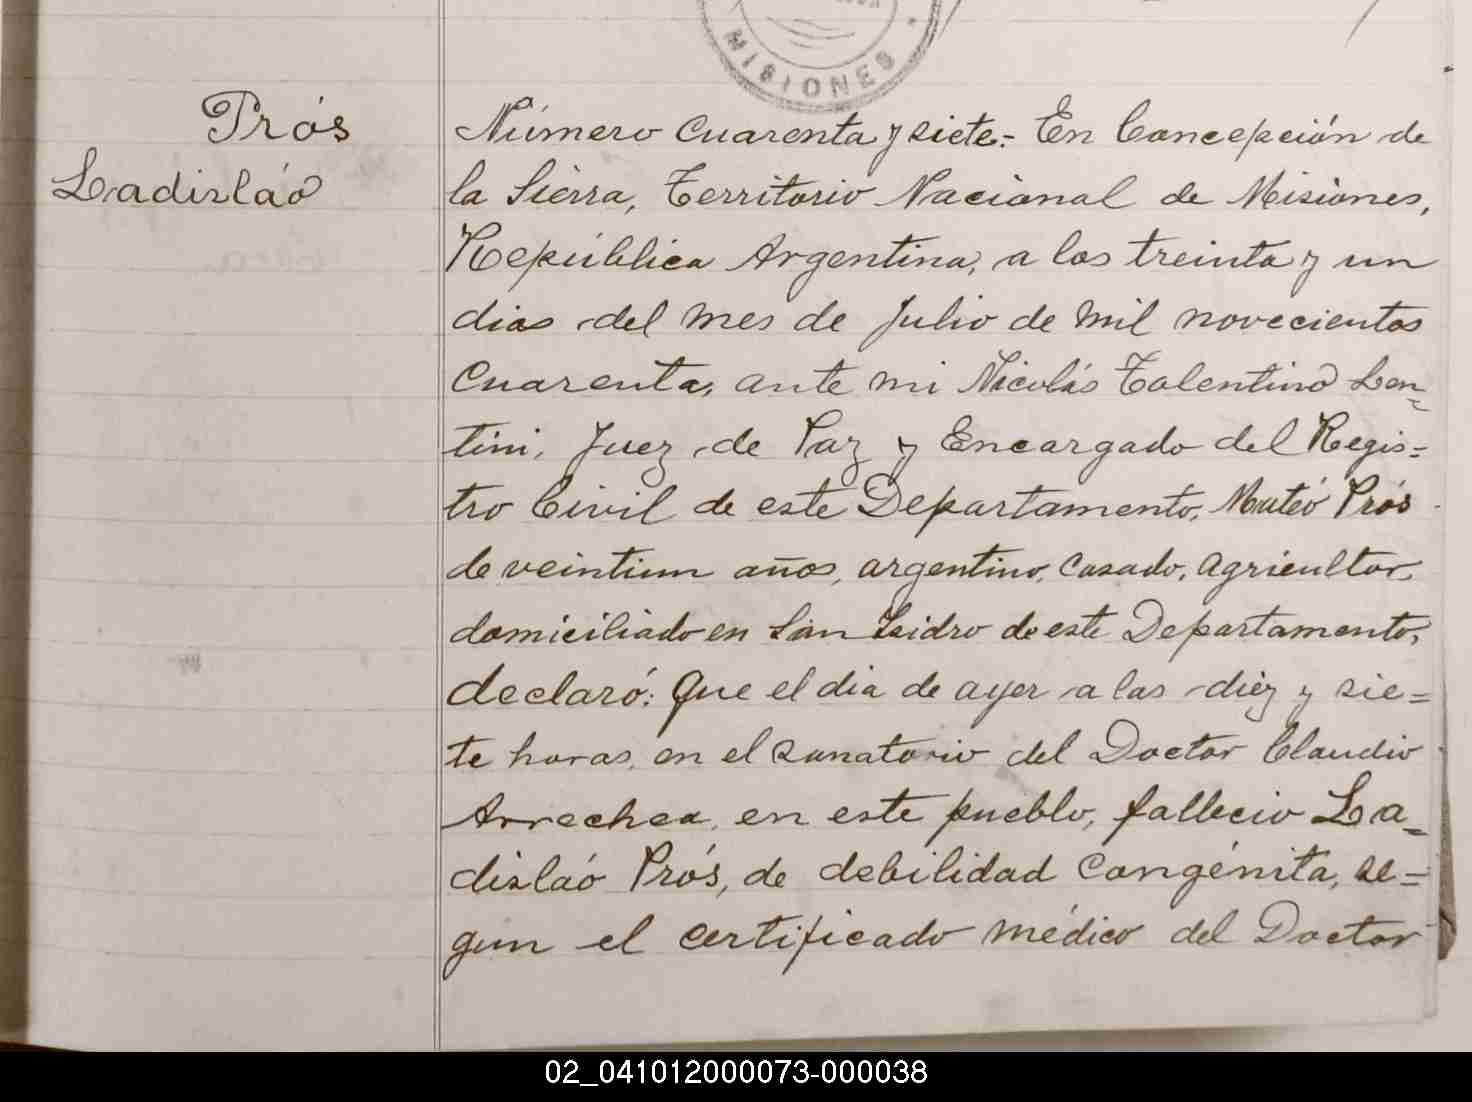 MISIONES
Prós
Ladisláo
Número cuarenta y siete.- En Concepción de
la Sierra, Territorio Nacional de Misiones,
República Argentina, a los treinta y un
dias del mes de Julio de mil novecientos
cuarenta, ante mi Nicolás Tolentino Len-
tini, Juez de Paz y Encargado del Regis=
tro Civil de este Departamento, Matéo Prós
de veintiun años, argentino, casado, agricultor,
domiciliado en San Isidro de este Departamento,
declaró: Que el dia de ayer a las diéz y sie=
te horas, en el sanatorio del Doctor Claudio
Arrechea, en este pueblo, fallecio La=
disláo Prós, de debilidad congénita, se=
gun el certificado médico del Doctor
02_041012000073-000038